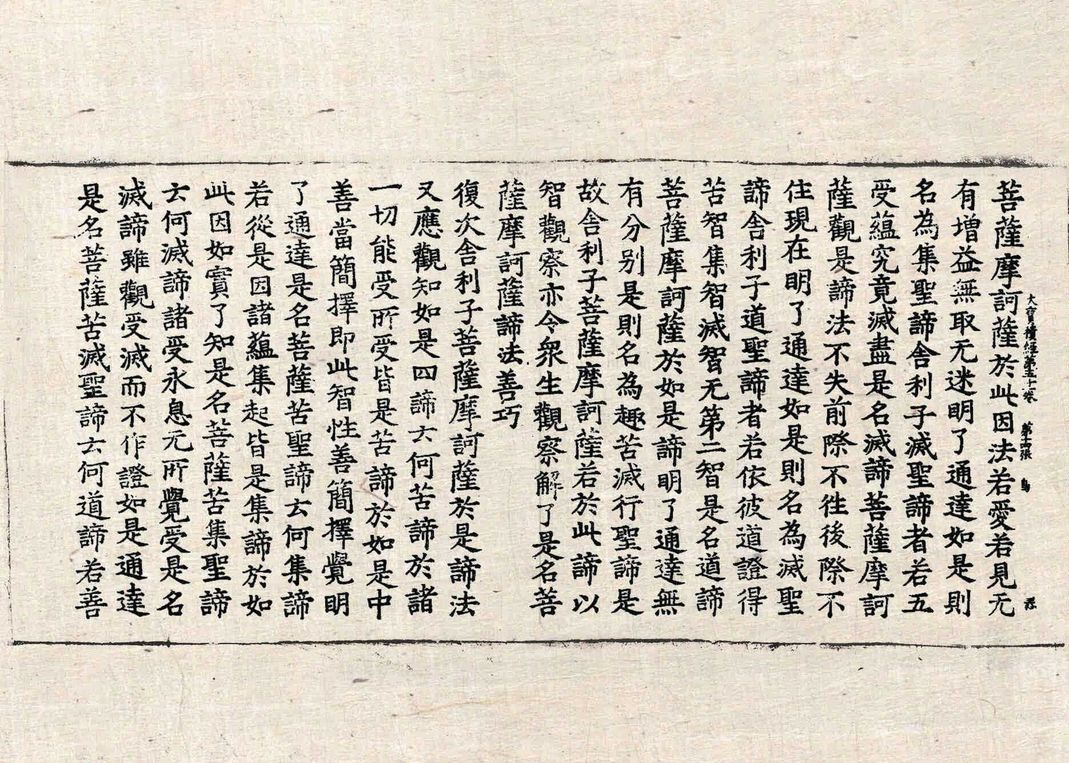 大寶積經第五十二卷 第十四張 鳥
菩薩摩訶薩於此因法若愛若見无
有增益無取无迷明了通達如是則
名為集聖諦舍利子滅聖諦者若五
受蘊究竟滅盡是名滅諦菩薩摩訶
薩觀是諦法不失前際不往後際不
住現在明了通達如是則名為滅聖
諦舍利子道聖諦者若依彼道證得
苦智集智滅智无第二智是名道諦
菩薩摩訶薩於如是諦明了通達無
有分别是則名為趣苦滅行聖諦是
故舍利子菩薩摩訶薩若於此諦以
智觀察亦令衆生觀察解了是名菩
薩摩訶薩諦法善巧
復次舍利子菩薩摩訶薩於是諦法
又應觀知如是四諦云何苦諦於諸
一切能受所受皆是苦諦於如是中
善當簡擇即此智性善簡擇覺明
了通達是名菩薩苦聖諦云何集諦
若從是因諸蘊集起皆是集諦於如
此因如實了知是名菩薩苦集聖諦
云何滅諦諸受永息无所覺受是名
滅諦雖觀受滅而不作證如是通達
是名菩薩苦滅聖諦云何道諦若善